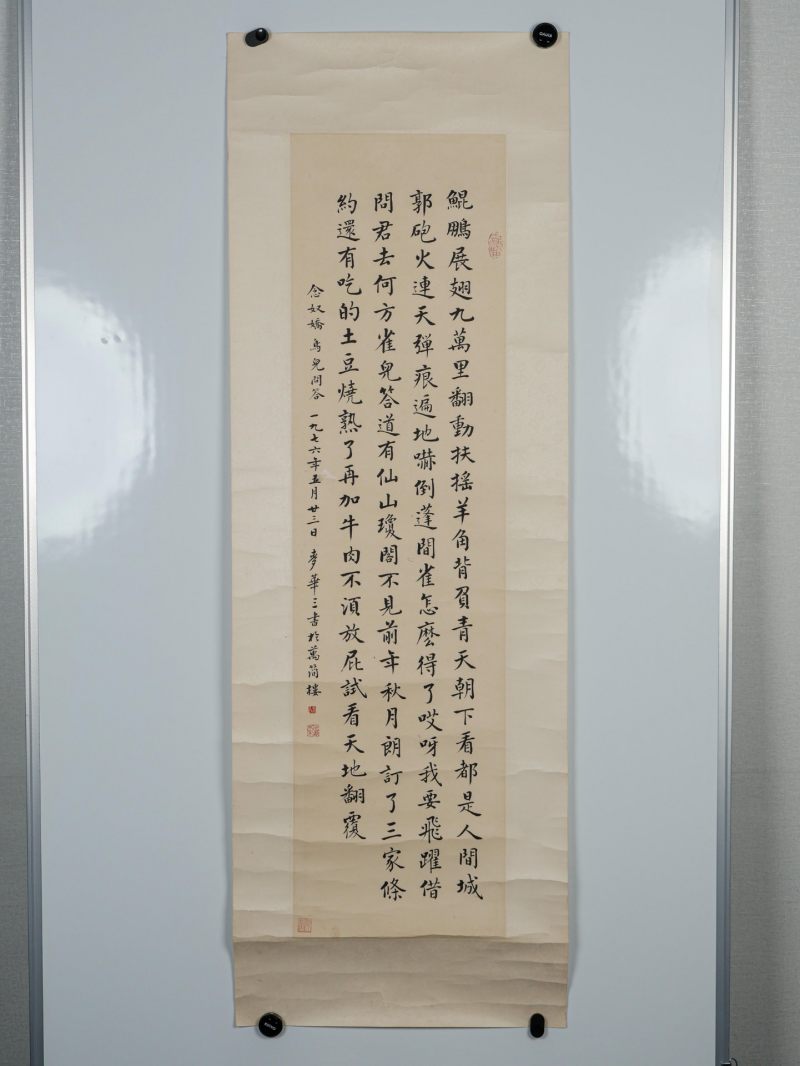 鯤鵬展翅九萬里翻動扶摇羊角背負青天朝下看都是人間城
郭砲火連天彈痕遍地嚇倒蓬間雀怎麽得了哎呀我要飛躍借
問君去何方雀兒答道有仙山瓊閣不見前年秋月朗訂了三家條
約還有吃的土豆燒熟了再加牛肉不須放屁試看天地翻覆
念奴嬌 鳥兒問答 一九七六年五月廿三日 麥華三書於萬簡樓